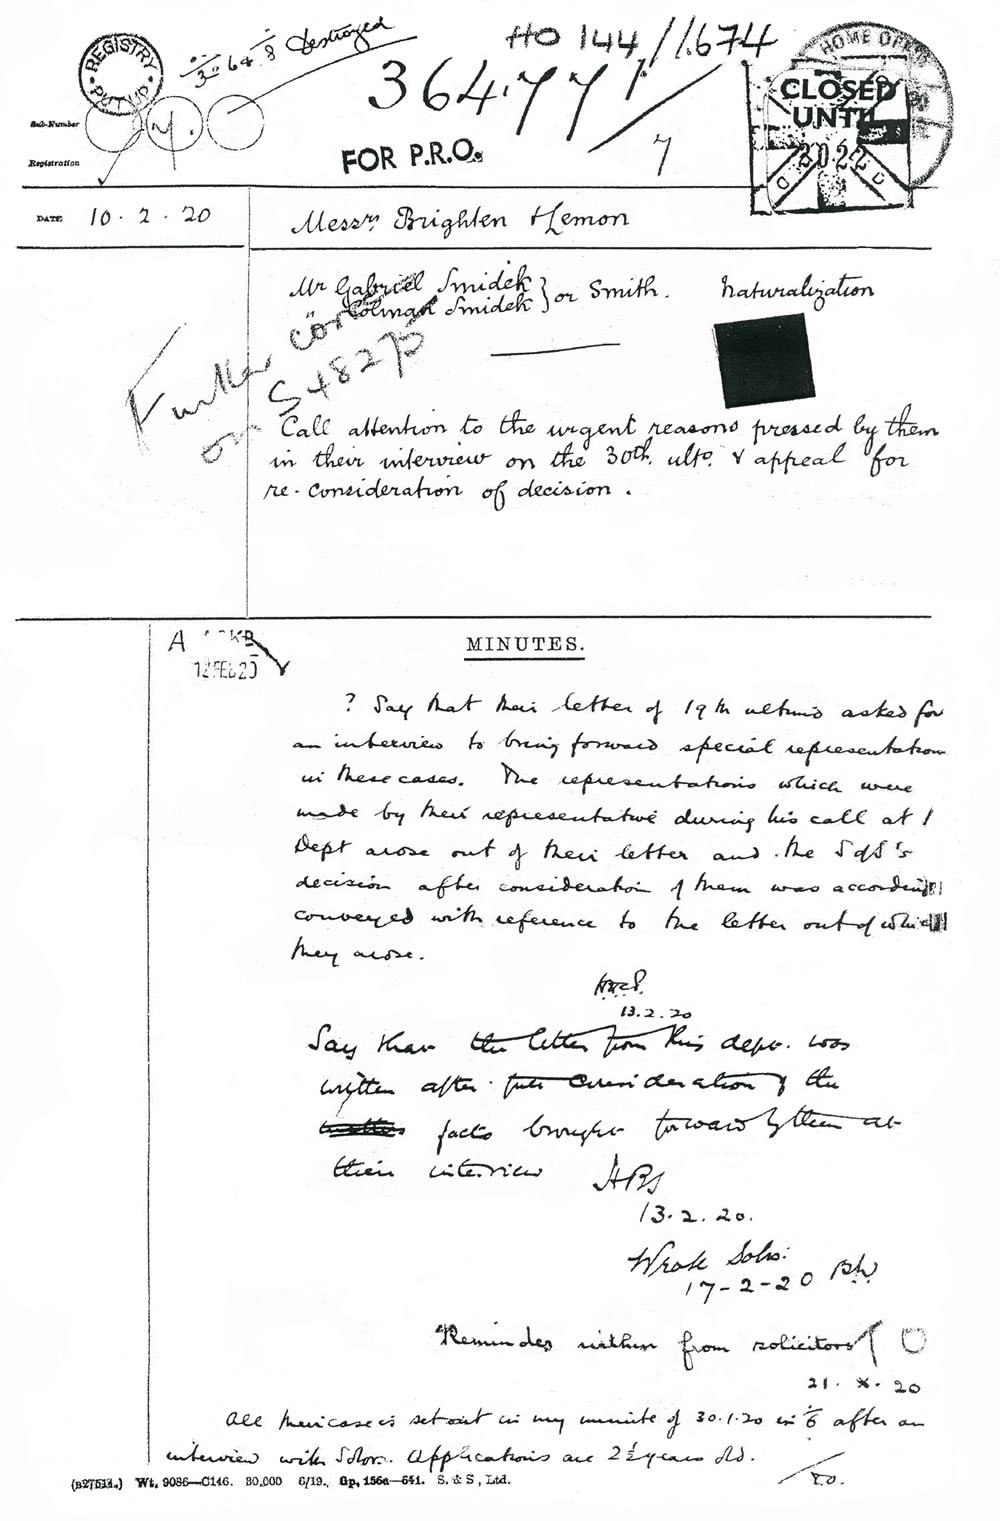 REGISTRY
3 to 8 destroyed
HO 144/1.674
364.771/
7
HOME OFFICE
CLOSED
UNTIL
2022
Sub-Number
7.
Registration
FOR P.R.O.
DATE 10.2.20
Messrs Brighten & Lemon
Mr Gabriel Smidek } or Smith. Naturalization
" Colman Smidek
Further
on S48275
Call attention to the urgent reasons pressed by them
in their interview on the 30th. ulto. & appeal for
re-consideration of decision.
MINUTES.
A
12 FEB 20
? Say that their letter of 19th ultimo asked for
an interview to bring forward special representation
in these cases. The representations which were
made by their representative during his call at /
Dept arose out of their letter and the SofS's
decision after consideration of them was
conveyed with reference to the letter out of which
they arose.
13.2.20
Say that the letter from this dept. was
written after full consideration of the
facts brought forward by them at
their interview
HBS
13.2.20.
Wrote Solrs:
17-2-20
Reminder within from solicitors
21.X.20
All their case is set out in my minute of 30.1.20 in /6 after an
interview with Solors. Applications are 2½ years old.
(B27514.) Wt. 9086—C146. 30,000 6/19. Gp. 156a—641. S. & S., Ltd.